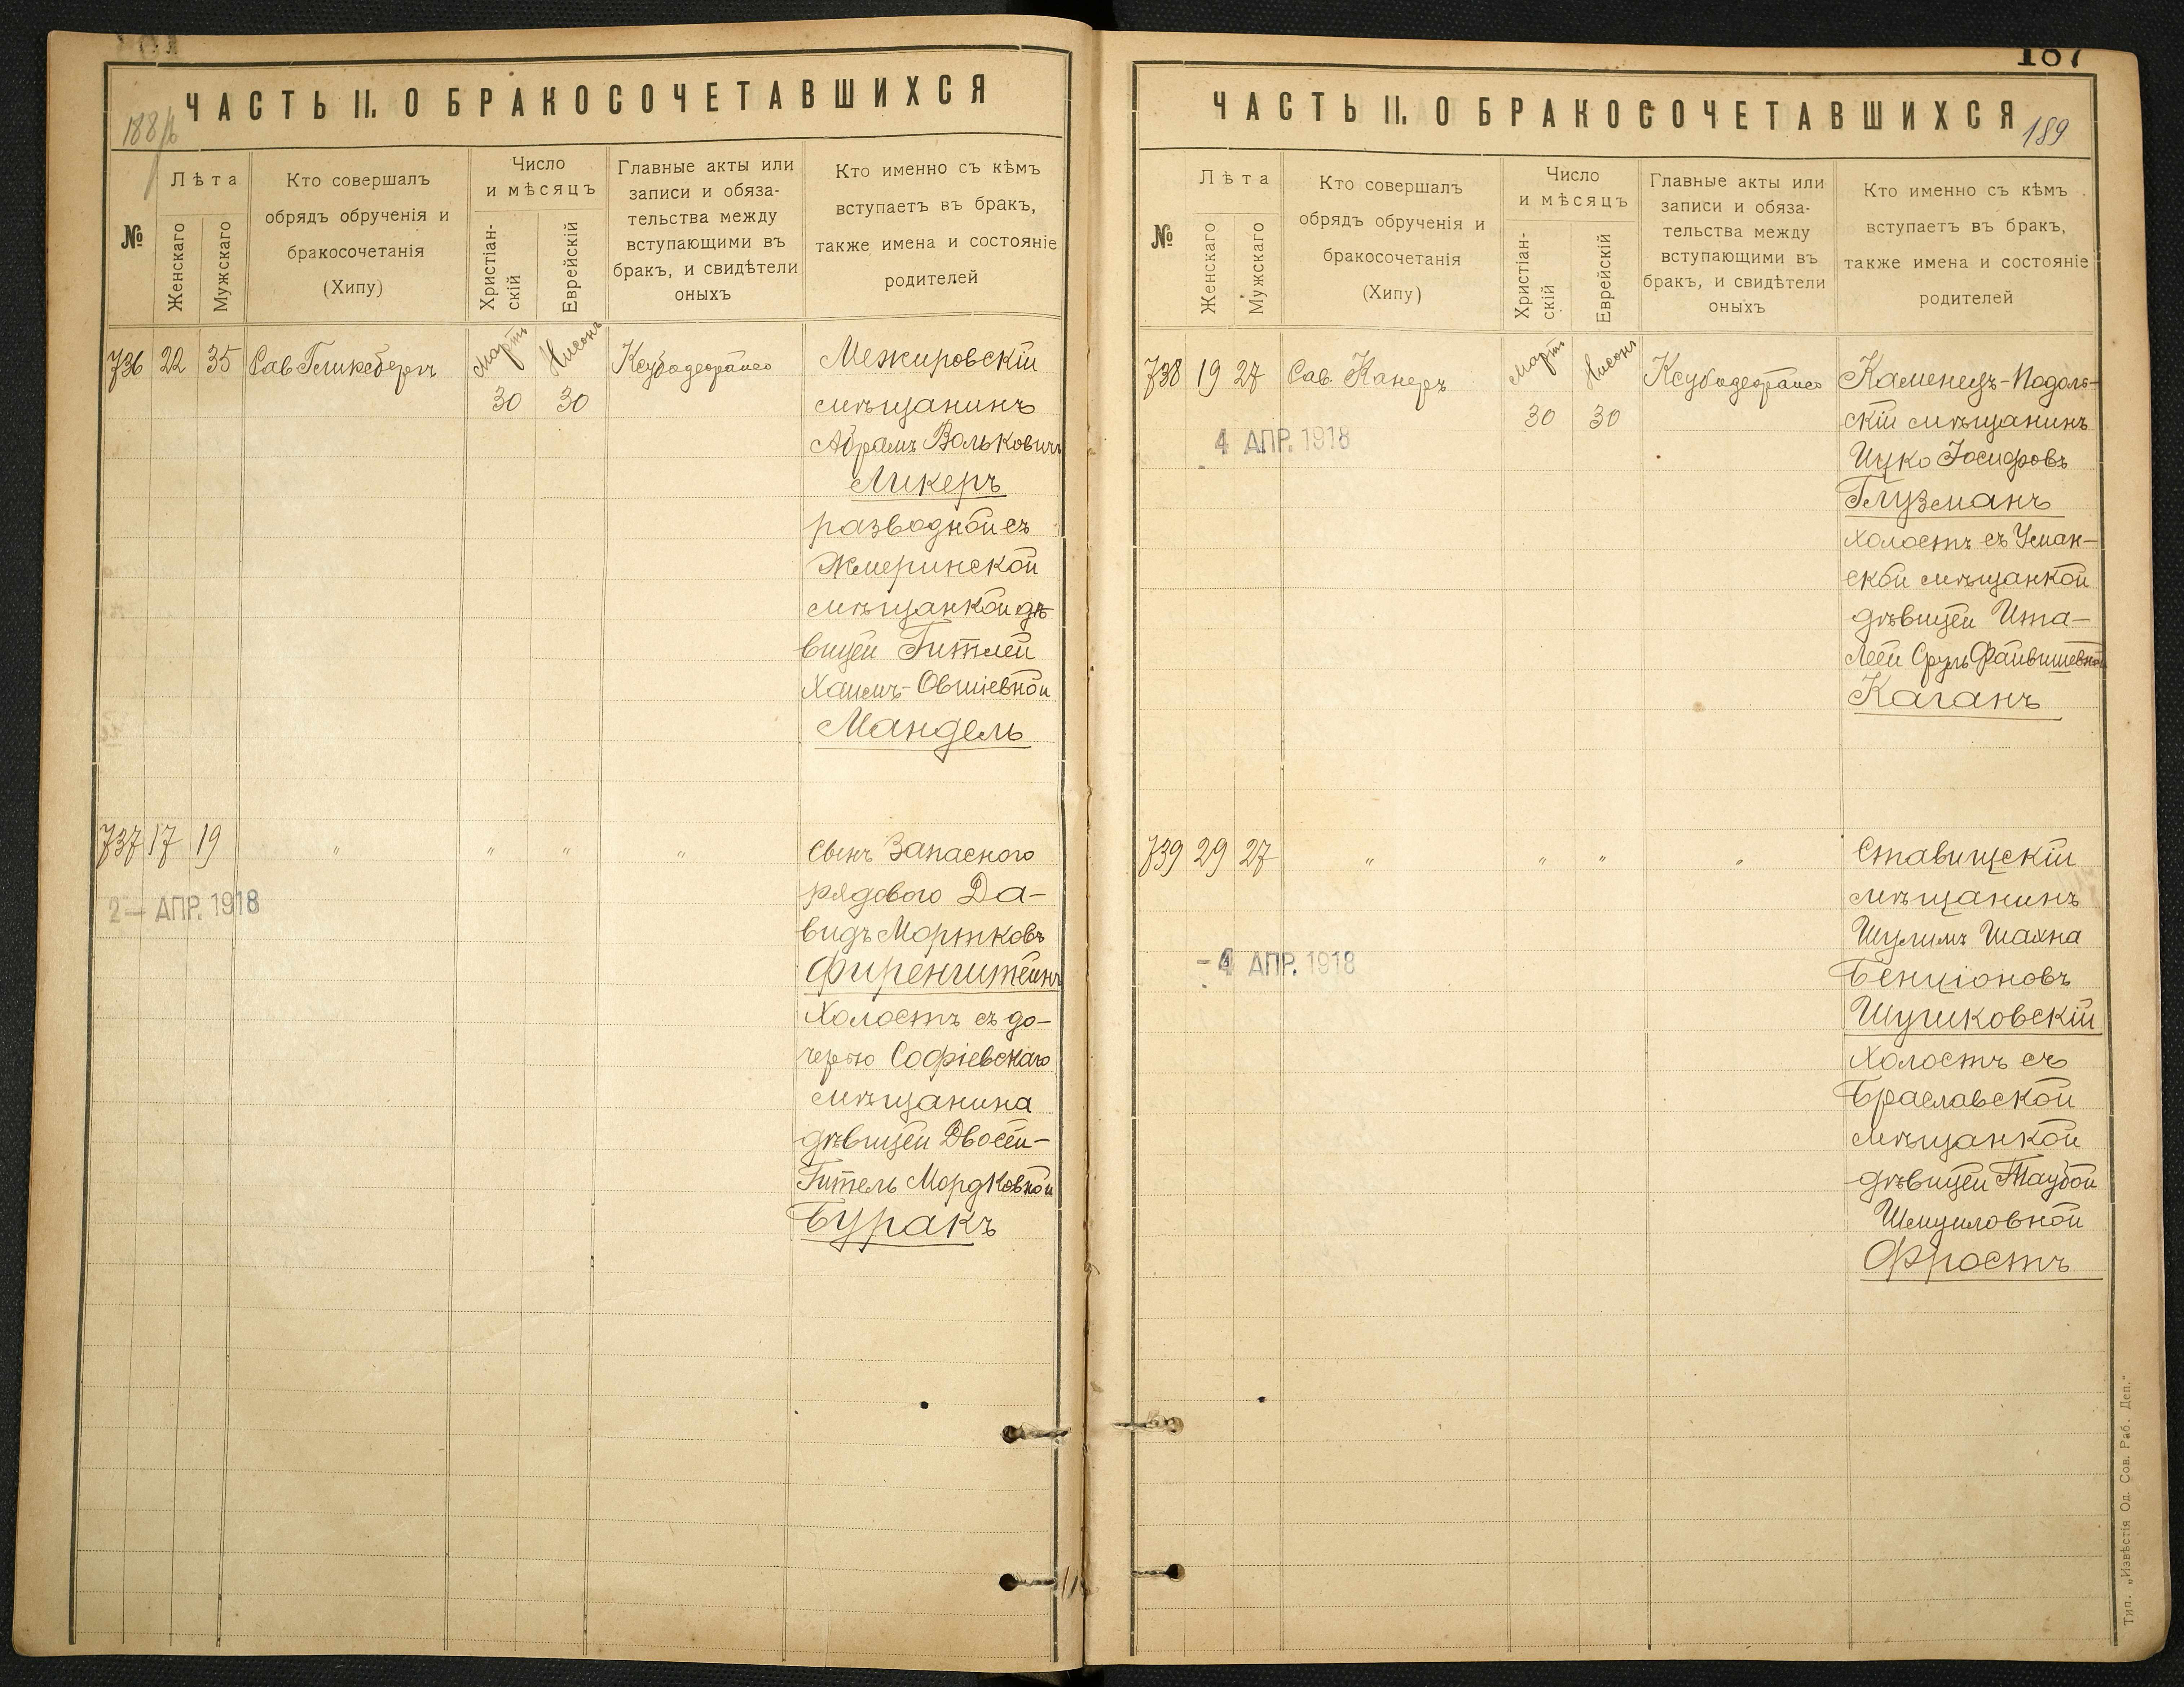 ЧАСТЬ II. О БРАКОСОЧЕТАВШИХСЯ
188
№
Лѣта
Женскаго
Мужскаго
Кто совершалъ
обрядъ обрученія и
бракосочетанія
(Хипу)
Число
и мѣсяцъ
Христіан-
скій
Еврейскій
Главные акты или
записи и обяза-
тельства между
вступающими въ
бракъ, и свидѣтели
оныхъ
Кто именно съ кѣмъ
вступаетъ въ бракъ,
также имена и состояніе
родителей
736 22 35 Сав Гликсбергъ Мартъ Нисонъ
30 30
Межировскій
мѣщанинъ
Абрамъ Вольковичъ
Ликеръ
разводной съ
Жмеринской
мѣщанкой дѣ
вицей Гитлей
Хаимъ-Овшіевной
Мандель
737 17 19 " " " "
2 - АПР. 1918
сынъ Запасного
рядового Да-
видъ Мортковъ
Фиренштейнъ
Холостъ съ до-
черью Софіевскаго
мѣщанина
дѣвицей Двосей-
Гитель Мордковной
Буракъ
187
ЧАСТЬ II. О БРАКОСОЧЕТАВШИХСЯ
189
№
Лѣта
Женскаго
Мужскаго
Кто совершалъ
обрядъ обрученія и
бракосочетанія
(Хипу)
Число
и мѣсяцъ
Христіан-
скій
Еврейскій
Главные акты или
записи и обяза-
тельства между
вступающими въ
бракъ, и свидѣтели
оныхъ
Кто именно съ кѣмъ
вступаетъ въ бракъ,
также имена и состояніе
родителей
738 19 27 Сав. Канеръ Мартъ Нисонъ
30 30
4 АПР. 1918
Каменецъ-Подоль-
скій мѣщанинъ
Ицко Іосифовъ
Глузманъ
холостъ съ Уман-
ской мѣщанкой
дѣвицей Ита-
Леей Сруль Файвишевной
Каганъ
739 29 27 " " " "
-4 АПР. 1918
Ставищскій
мѣщанинъ
Шулимъ Шахна
Бенціоновъ
Шушковскій
Холостъ съ
Браславской
мѣщанкой
дѣвицей Таубой
Шмуиловной
Фростъ
Тип. „Извѣстія Од. Сов. Раб. Деп."